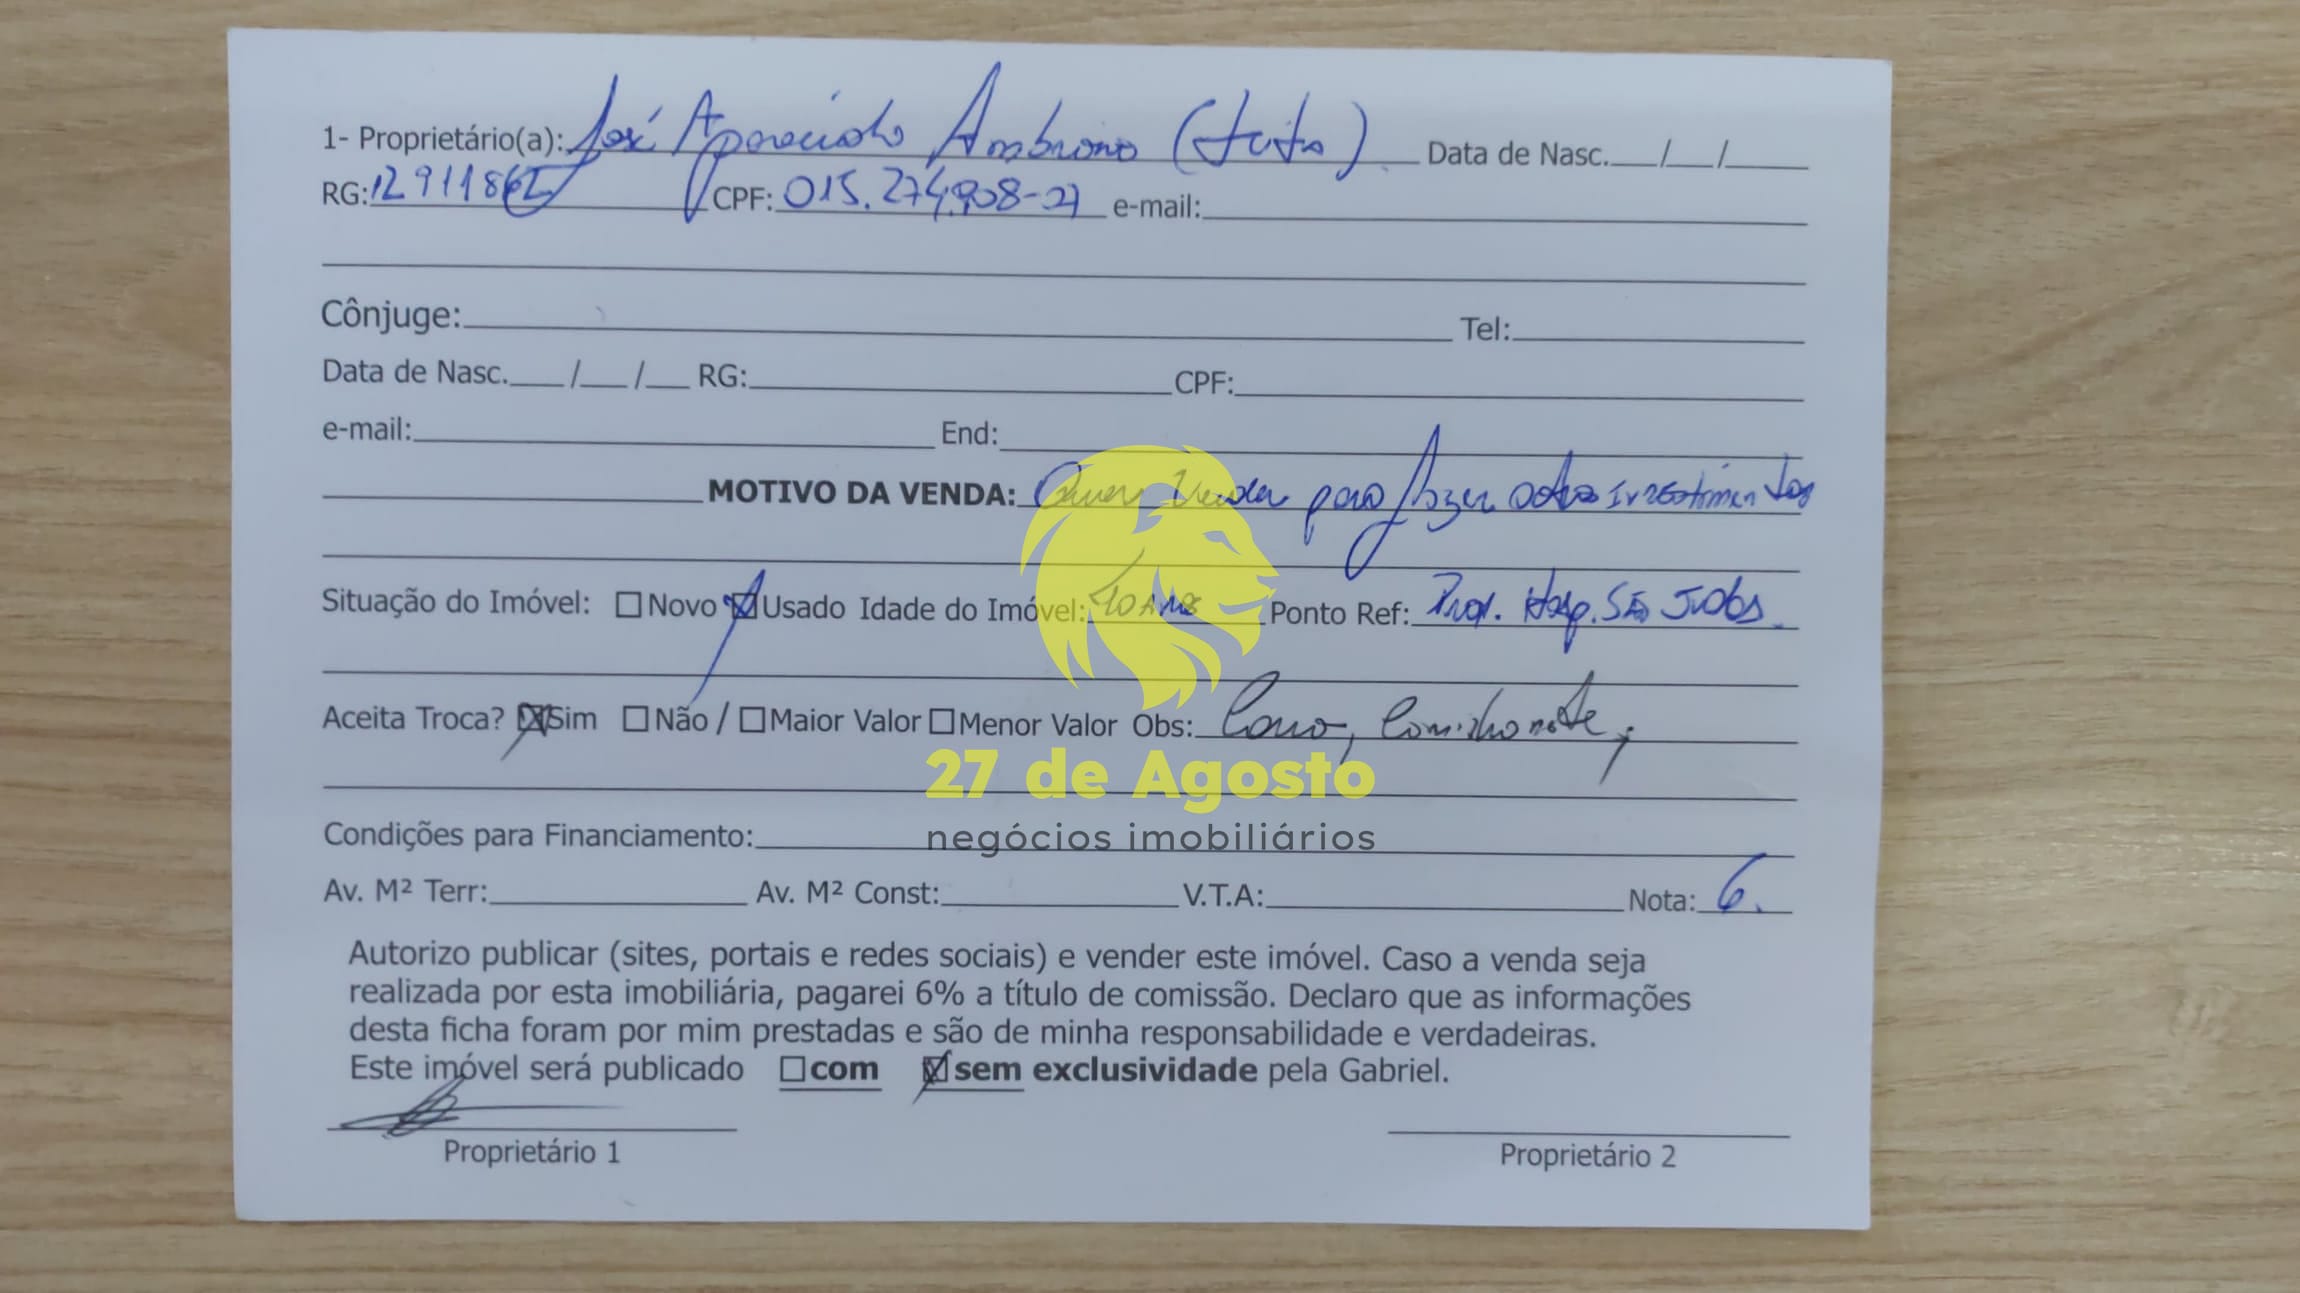 1- Proprietário(a): José Aparecido Ambrosio (tuto). Data de Nasc.___/___/___
RG: 129118 CPF: 015.274.908-27 e-mail:
Cônjuge: Tel:
Data de Nasc.___/___/___ RG: CPF:
e-mail: End:
MOTIVO DA VENDA: Quer vender para fazer outros investimentos
Situação do Imóvel: ☐ Novo ☒ Usado Idade do Imóvel: 10 anos Ponto Ref: Prox. Hosp. São Judas.
Aceita Troca? ☒ Sim ☐ Não / ☐ Maior Valor ☐ Menor Valor Obs: Carro, Caminhonete,
27 de Agosto
negócios imobiliários
Condições para Financiamento:
Av. M² Terr: Av. M² Const: V.T.A: Nota: 6.
Autorizo publicar (sites, portais e redes sociais) e vender este imóvel. Caso a venda seja
realizada por esta imobiliária, pagarei 6% a título de comissão. Declaro que as informações
desta ficha foram por mim prestadas e são de minha responsabilidade e verdadeiras.
Este imóvel será publicado ☐ com ☒ sem exclusividade pela Gabriel.
Proprietário 1 Proprietário 2